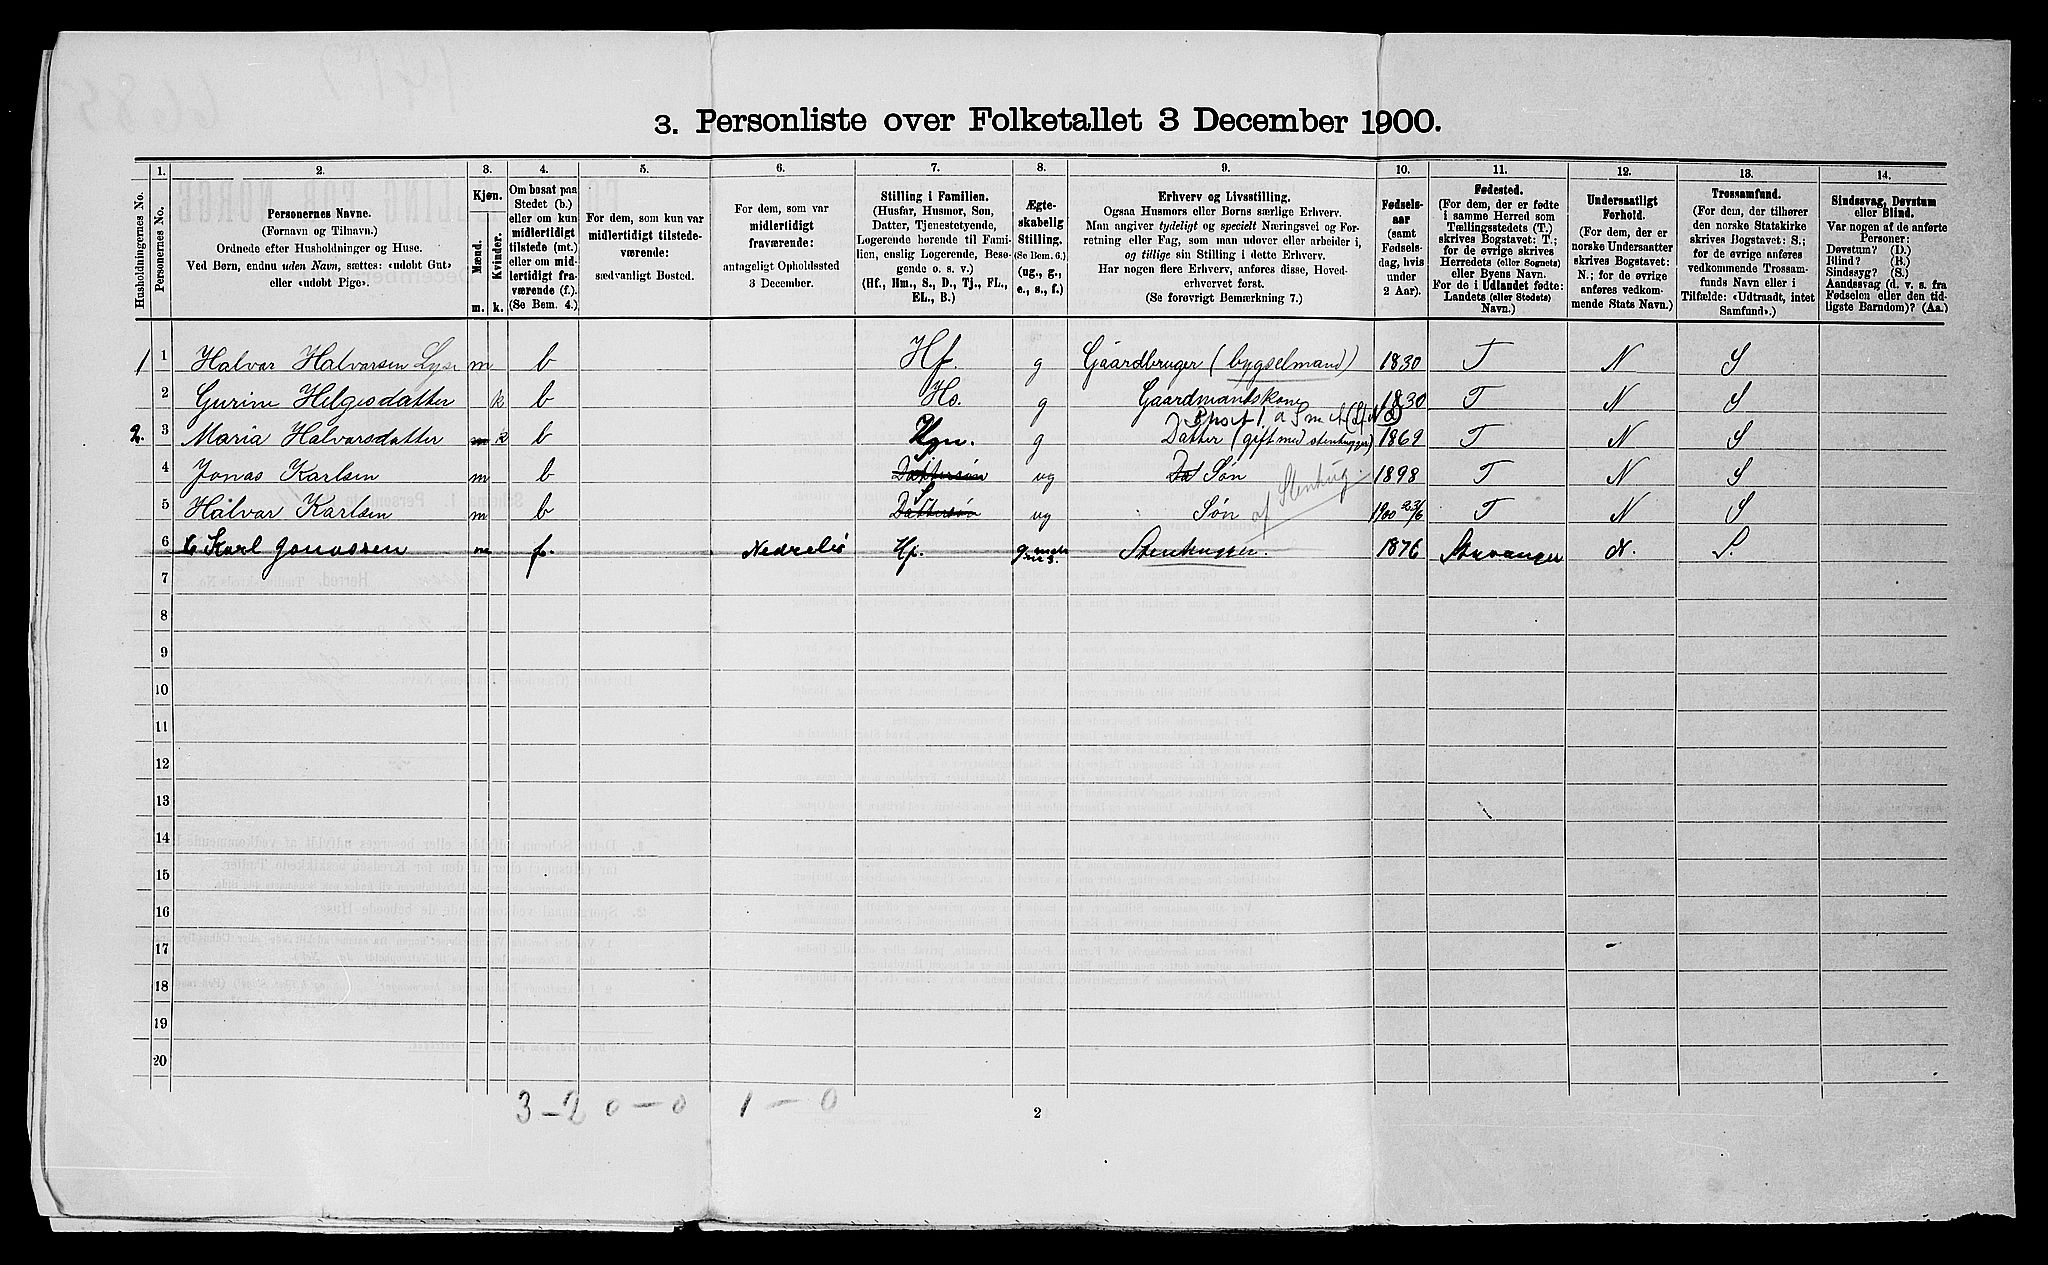 3. Personliste over Folketallet 3 December 1900.
Husholdningernes No.
1.
Personernes No.
2.
Personernes Navne.
(Fornavn og Tilnavn.)
Ordnede efter Husholdninger og Huse.
Ved Børn, endnu uden Navn, sættes: «udøbt Gut»
eller «udøbt Pige».
3.
Kjøn.
Mænd.
Kvinder.
m. k.
4.
Om bosat paa
Stedet (b.)
eller om kun
midlertidigt
tilstede (mt.)
eller om mid-
lertidigt fra-
værende (f.)
(Se Bem. 4.)
5.
For dem, som kun var
midlertidigt tilstede-
værende:
sædvanligt Bosted.
6.
For dem, som var
midlertidigt
fraværende:
antageligt Opholdssted
3 December.
7.
Stilling i Familien.
(Husfar, Husmor, Søn,
Datter, Tjenestetyende,
Logerende hørende til Fami-
lien, enslig Logerende, Besø-
gende o. s. v.)
(Hf., Hm., S., D., Tj., FL.,
EL., B.)
8.
Ægte-
skabelig
Stilling.
(Se Bem. 6.)
(ug., g.,
e., s., f.)
9.
Erhverv og Livsstilling.
Ogsaa Husmors eller Børns særlige Erhverv.
Man angiver tydeligt og specielt Næringsvei og For-
retning eller Fag, som man udover eller arbeider i,
og tillige sin Stilling i dette Erhverv.
Har nogen flere Erhverv, anføres disse, Hoved-
erhvervet først.
(Se forøvrigt Bemærkning 7.)
10.
Fødsels-
aar
(samt
Fødsels-
dag, hvis
under
2 Aar).
11.
Fødested.
(For dem, der er fødte
i samme Herred som
Tællingsstedets (T.)
skrives Bogstavet: T.;
for de øvrige skrives
Herredets (eller Sognets)
eller Byens Navn.
For de i Udlandet fødte:
Landets (eller Stedets)
Navn.)
12.
Undersaatligt
Forhold.
(For dem, der er
norske Undersaatter
skrives Bogstavet:
N.; for de øvrige
anføres vedkom-
mende Stats Navn.)
13.
Trossamfund.
(For dem, der tilhører
den norske Statskirke
skrives Bogstavet: S.;
for de øvrige anføres
vedkommende Trossam-
funds Navn eller i
Tilfælde: «Udtraadt, intet
Samfund».)
14.
Sindssvag, Døvstum
eller Blind.
Var nogen af de anførte
Personer:
Døvstum? (D.)
Blind? (B.)
Sindssyg? (S.)
Aandssvag (d. v. s. fra
Fødselen eller den tid-
ligste Barndom)? (Aa.)
1 1 Halvar Halvarsen Lyse m b Hf. g Gaardbruger (bygselmand) 1830 T N S
2 Gurine Helgesdatter k b Hs. g Gaardmandskone 1830 T N S
2. 3 Maria Halvarsdatter m k b Hm. g Datter (gift med stenhugger) 1869 T N S
4 Jonas Karlsen m b S Dattersøn ug Da Søn 1898 T N S
5 Halvar Karlsen m b S Dattersøn ug Søn af Stenhug- 1900 23/6 T N S
6 Karl Jonassen m f. Nedrelis Hf. g. Stenhugger. 1876 Stavanger N. S.
7
8
9
10
11
12
13
14
15
16
17
18
19
20
3-2 0-0 1-0
2